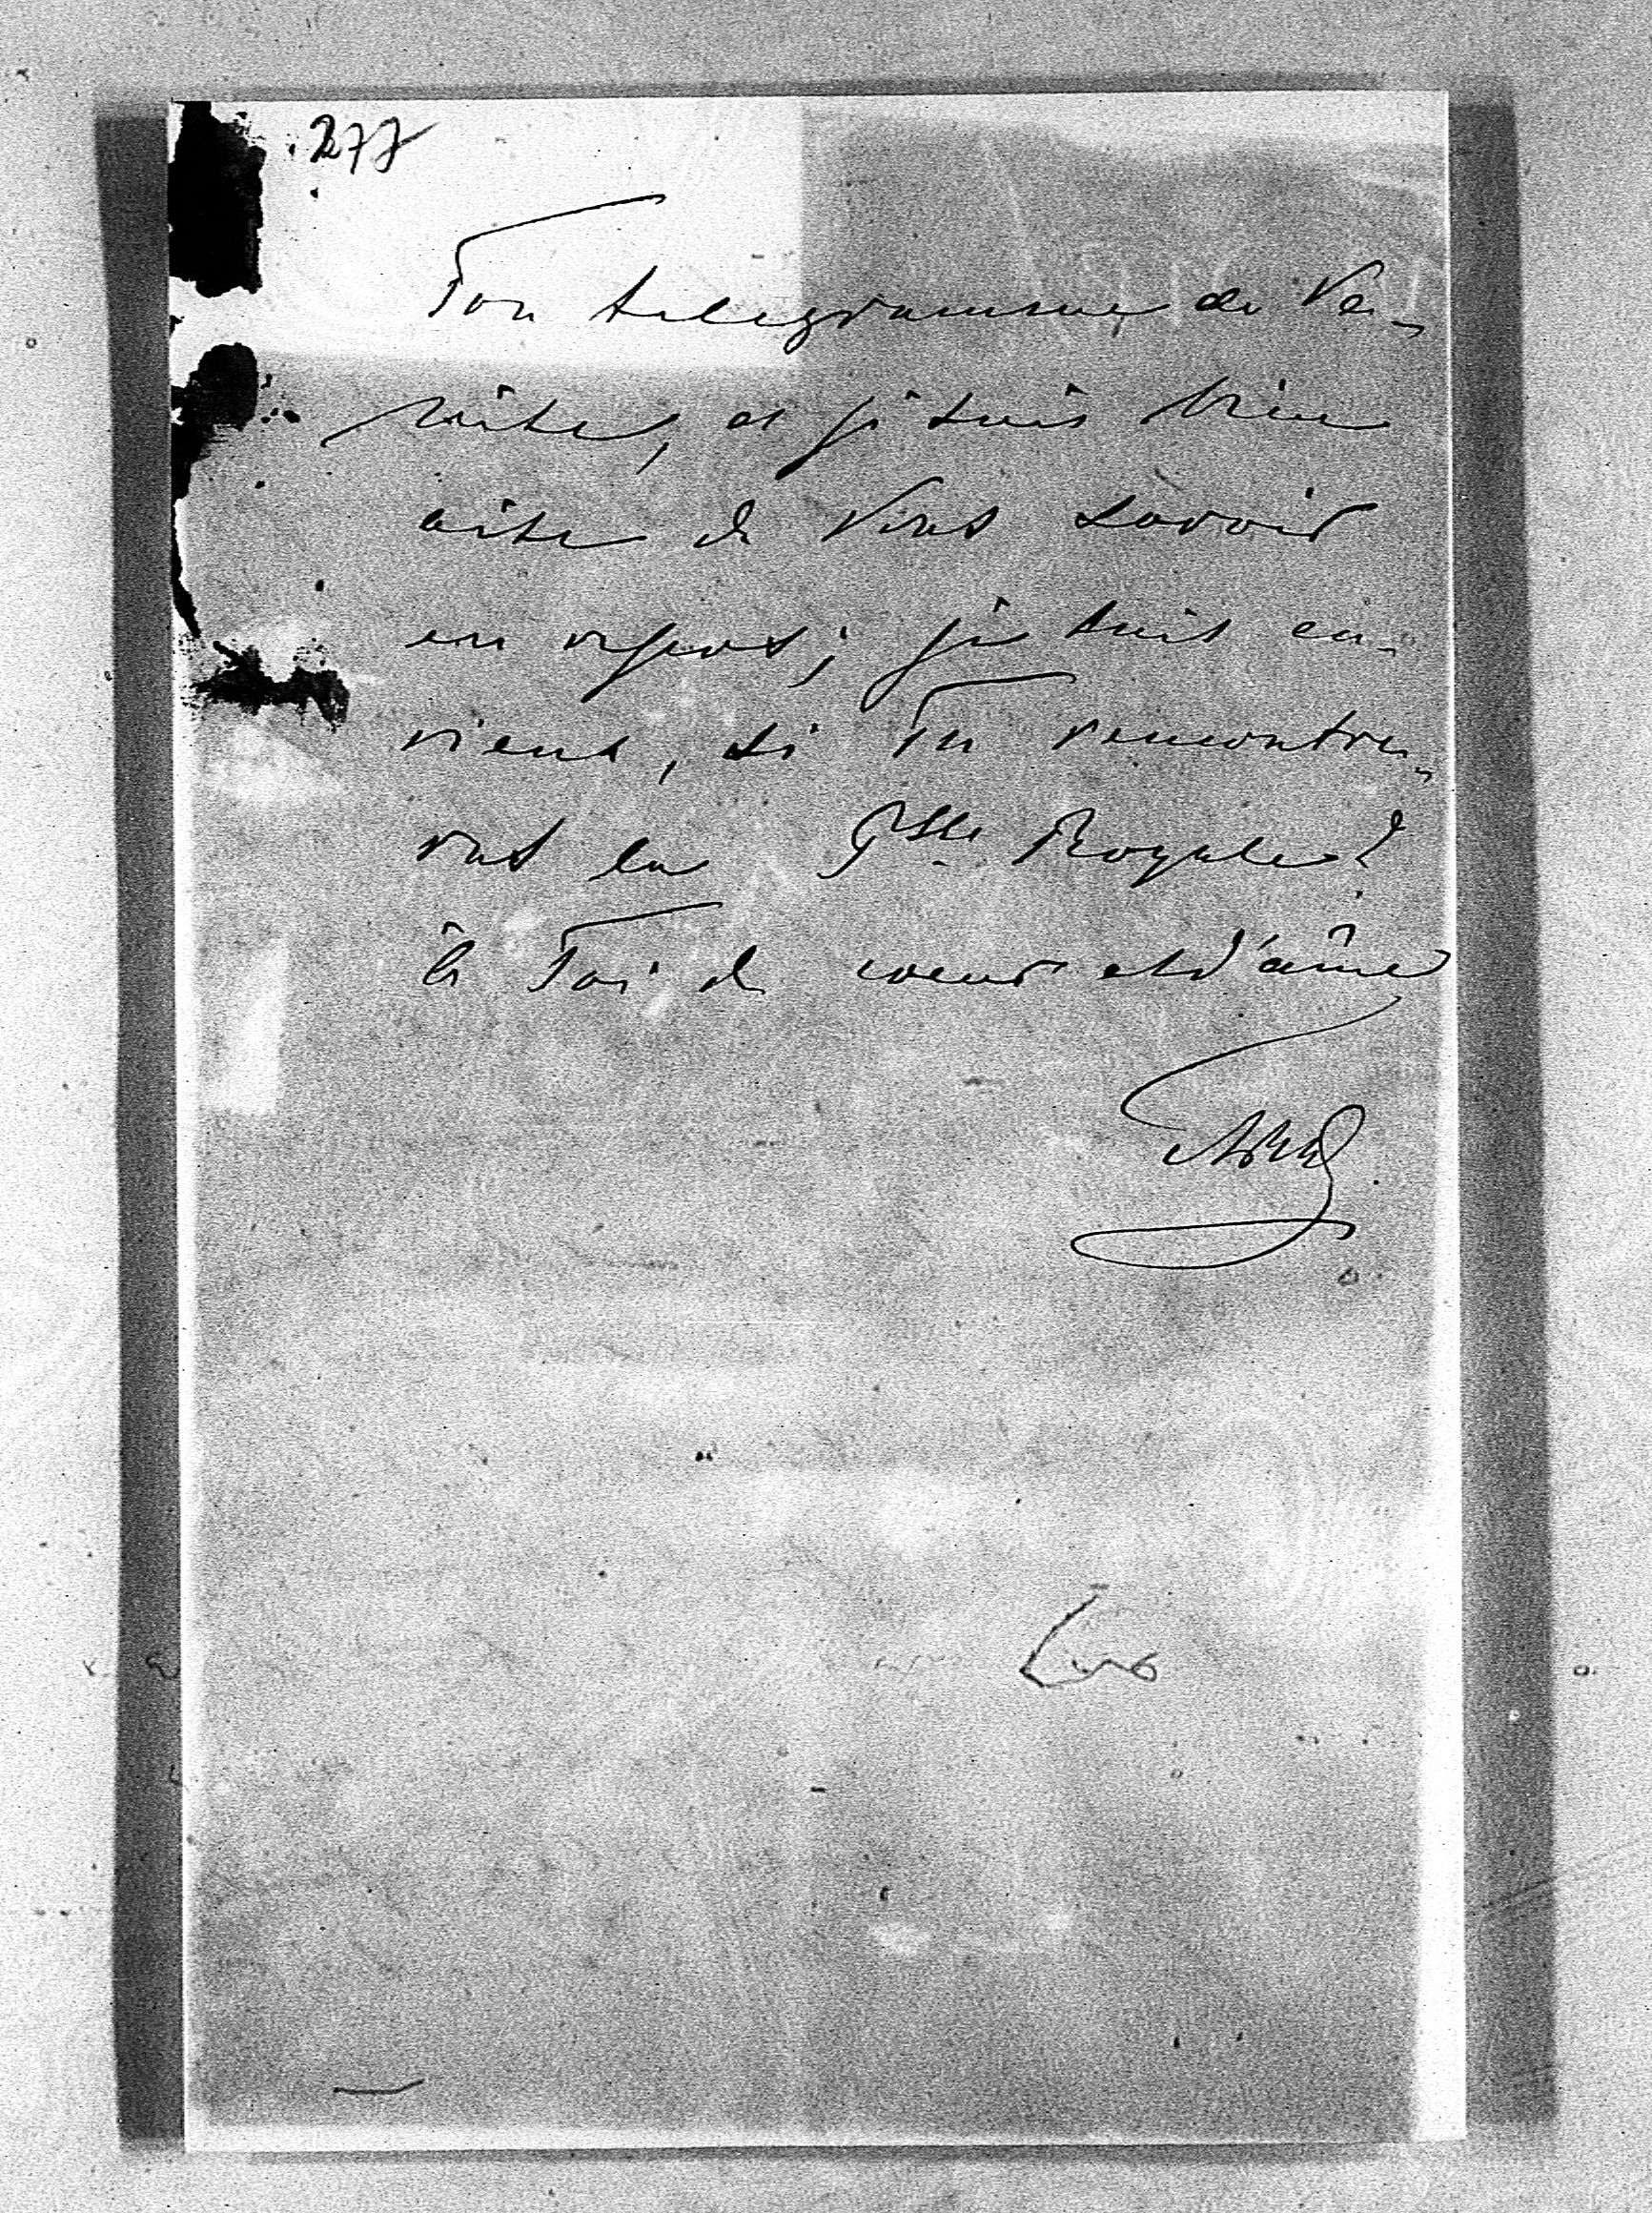 277
Ton telegramme de Ve-
nise, et je suis bien
aise de Vous savoir
en repos; je suis cu-
rieux, si Tu rencontre-
ras la Psse Royale?
à Toi de coeur et d'âme